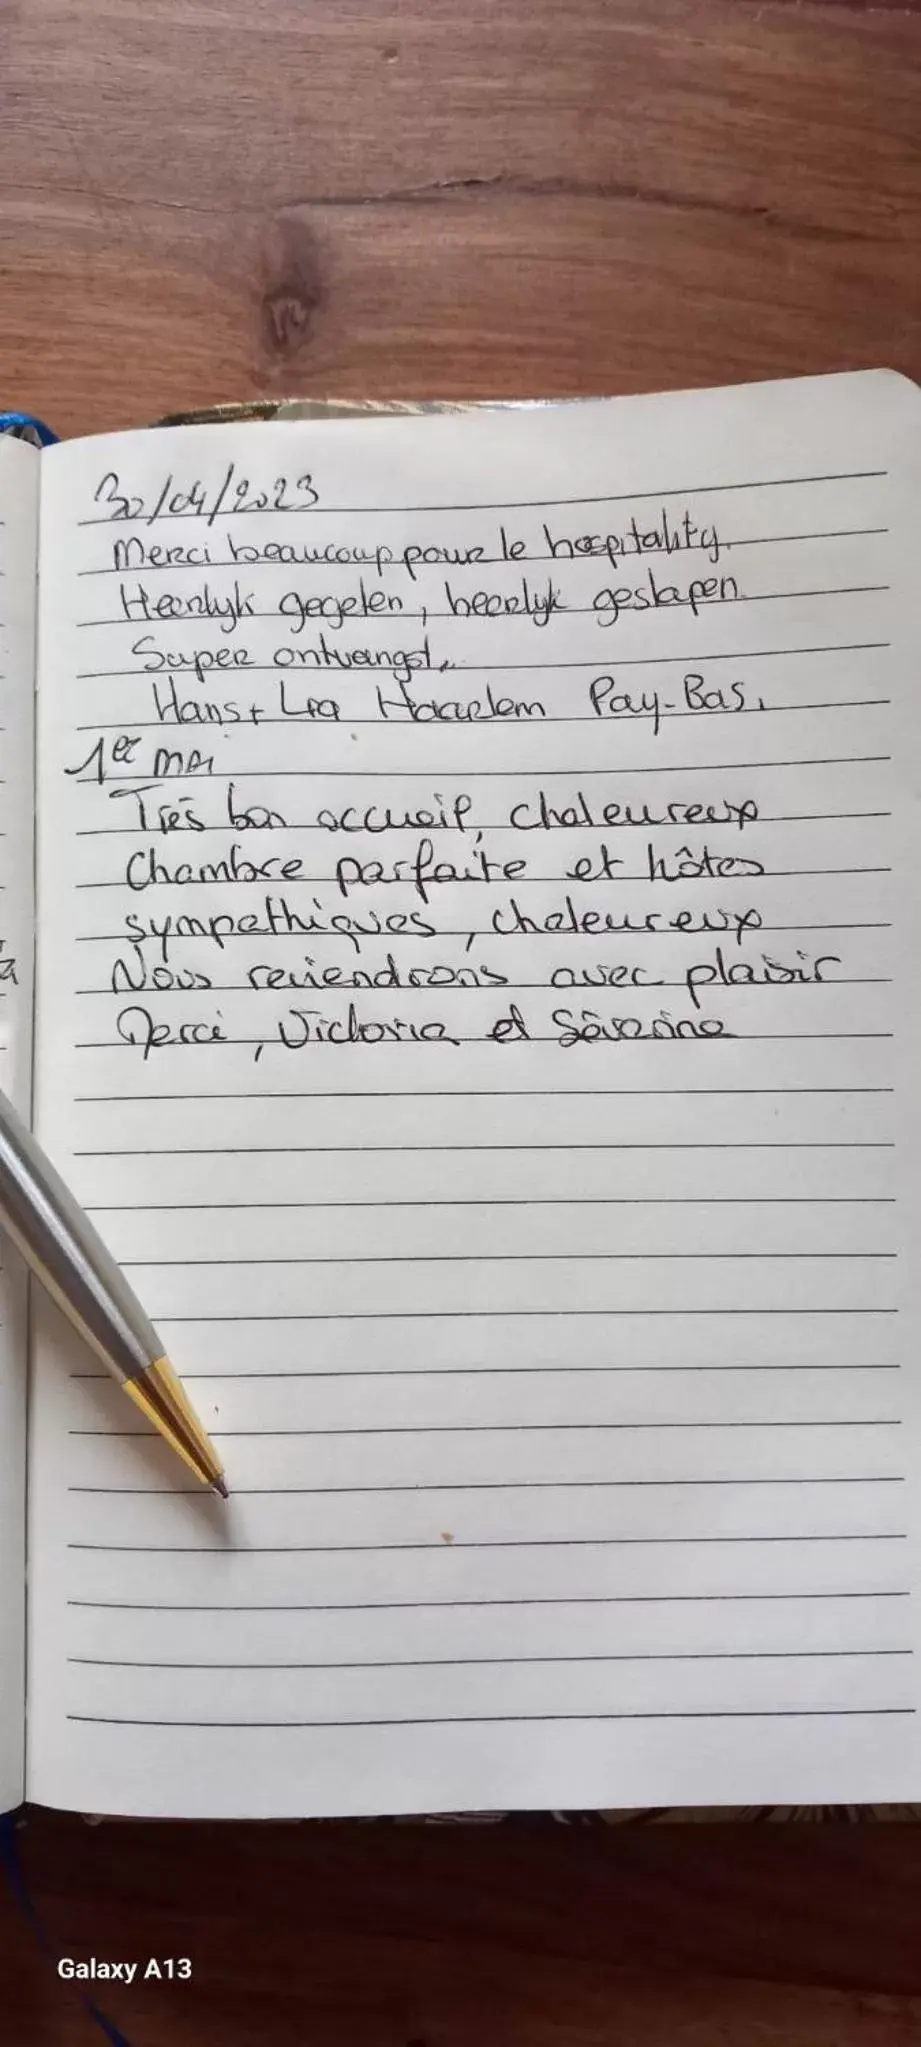 30/04/2023
Merci beaucoup pour le hospitality.
Heerlyk gegeten, heerlyk geslapen.
Super ontvangst.
Hans + Lia Haarlem Pay-Bas.
1er mai
Très bon accueil, chaleureux
Chambre parfaite et hôtes
sympathiques, chaleureux
Nous reviendrons avec plaisir
Merci, Victoria et Séverine
Galaxy A13